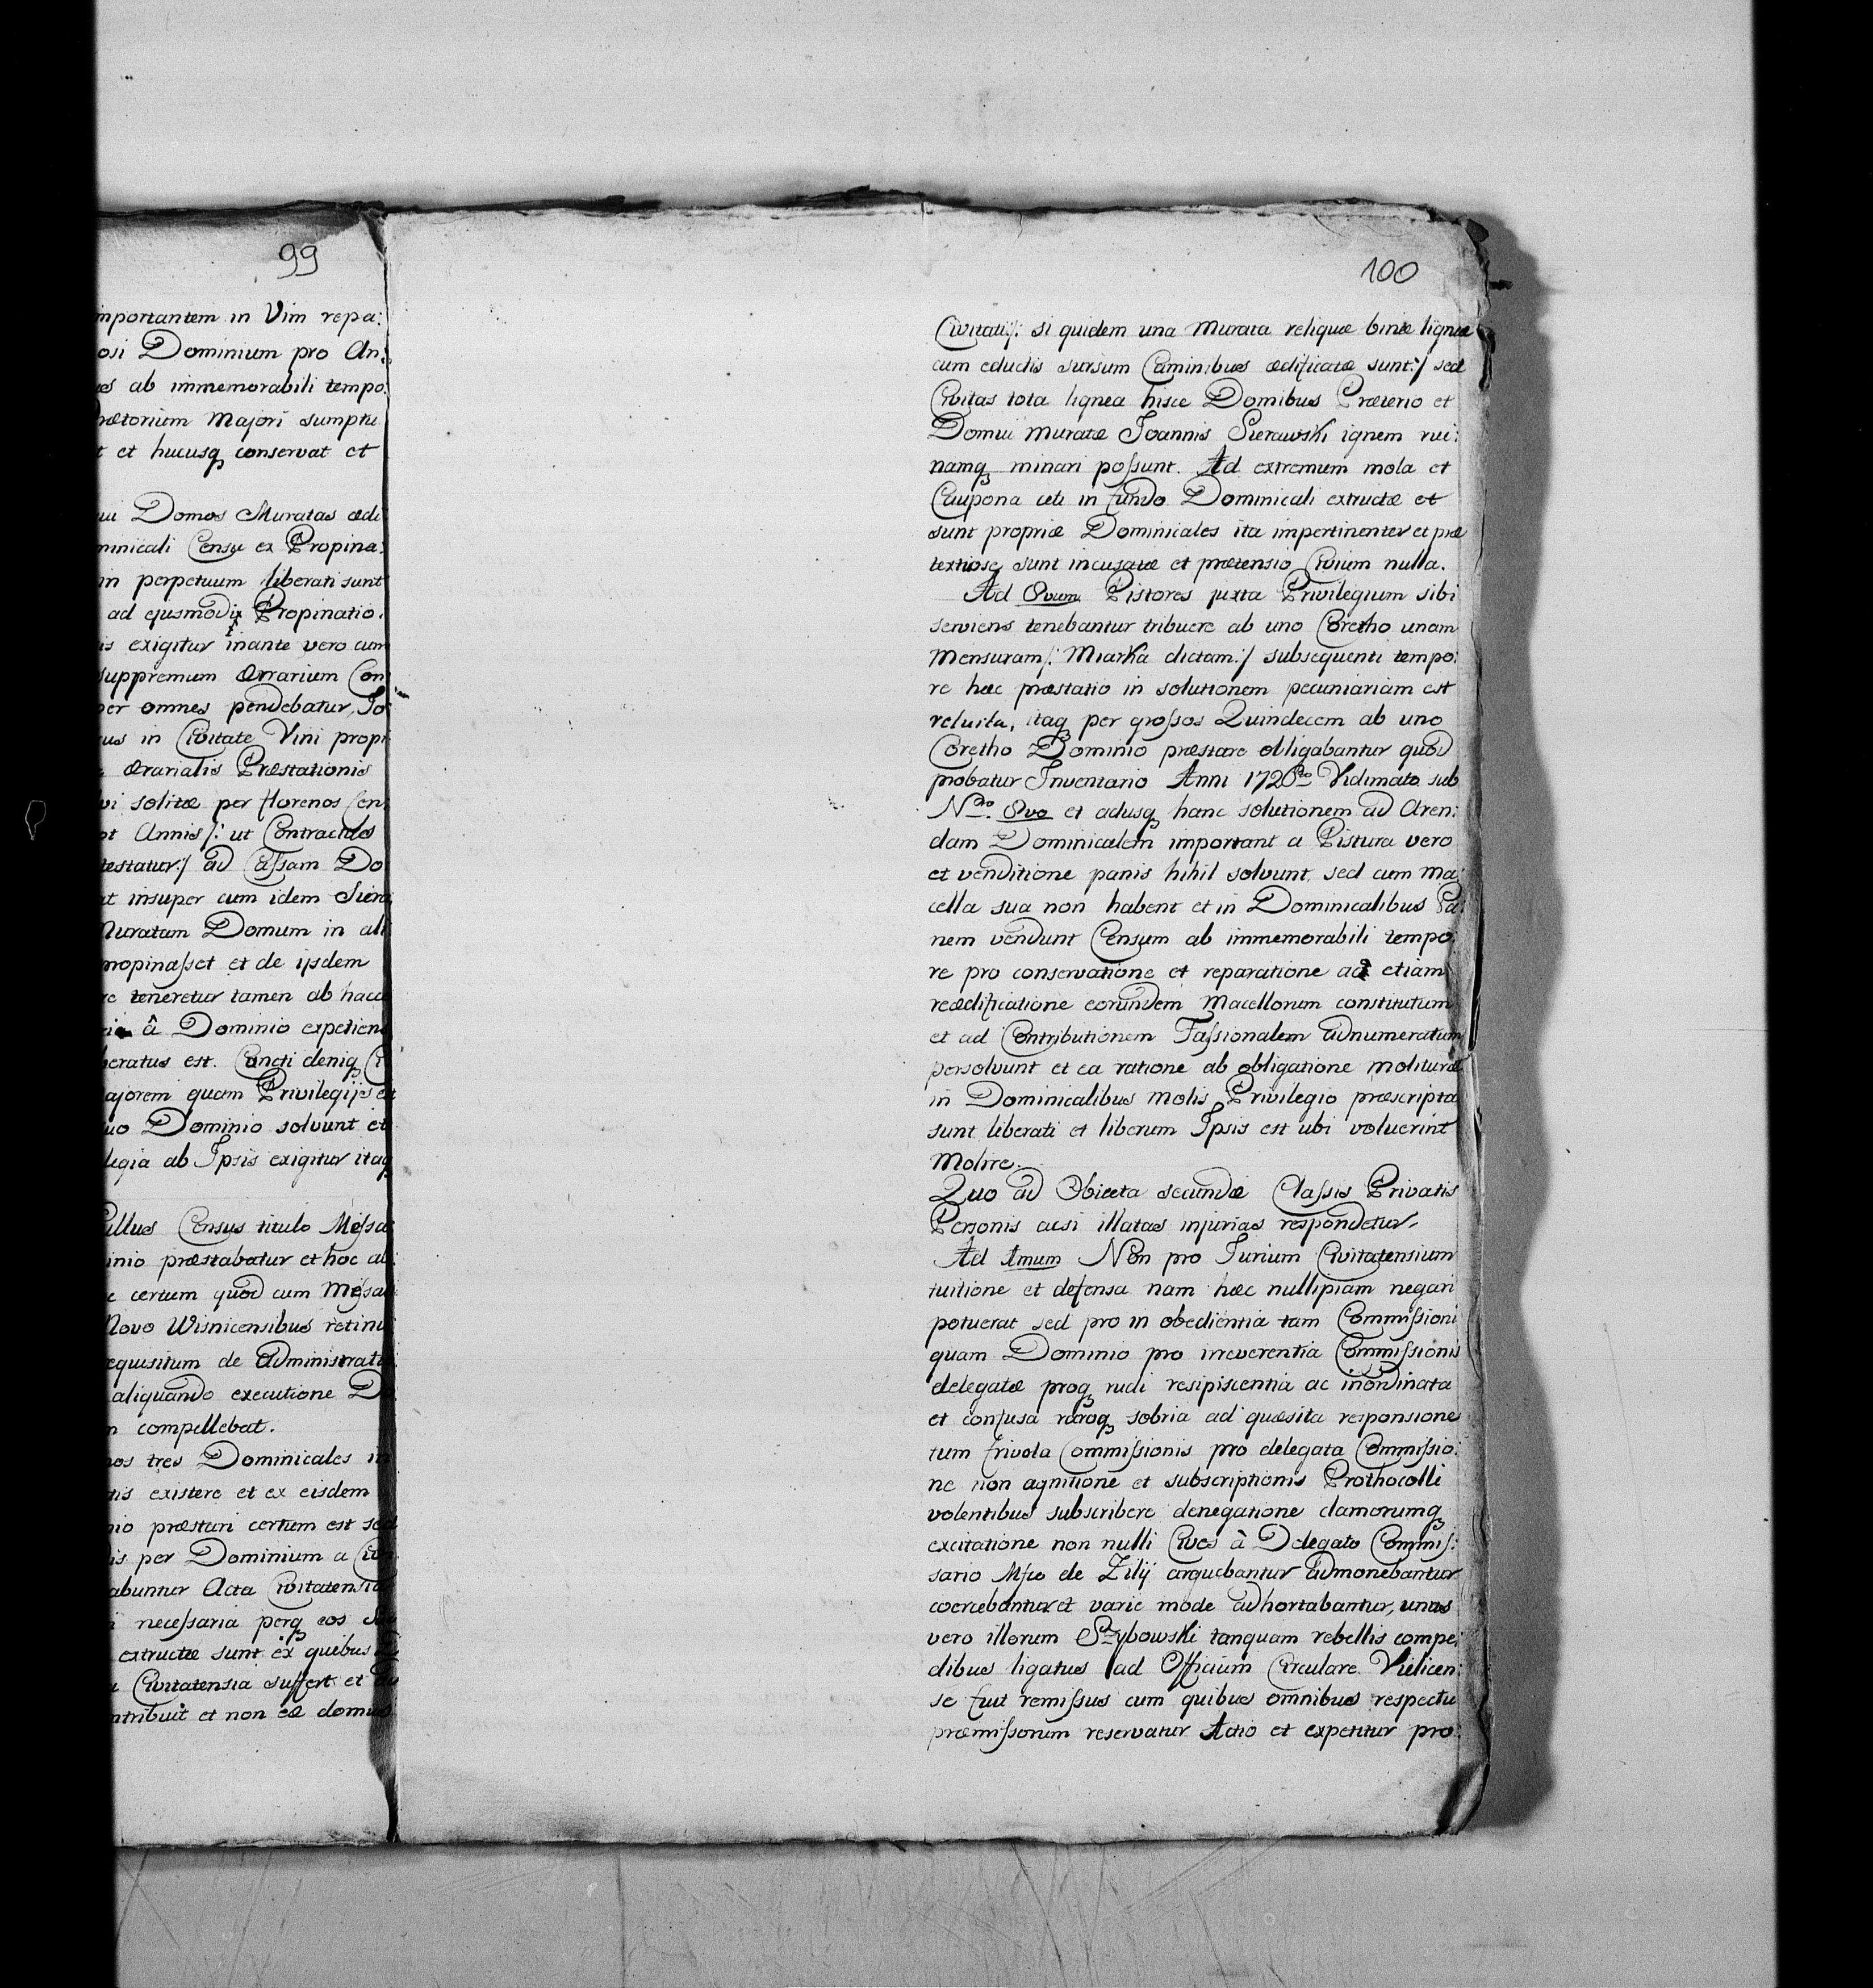 99
mportantem in Vim repa:
osi Dominium pro An:
es ab immemorabili tempo:
rætorium Majori sumptu
t et hucusq conservat et
ui Domos Muratas ædi
minicali Censu ex Propina:
in perpetuum liberati sunt
ad ejusmodi Propinatio.
is exigitur inante vero cum
suppremum Ærrarium Con
per omnes pendebatur, Jo
us in Civitate Vini propi
Ærarialis Præstationis
vi solitæ per florenos Cen
ot Annis /: ut Contractus
testatur :/ ad Cassam Do
at insuper cum idem Siera
Muratam Domum in ali
propinasset et de ijsdem
re teneretur tamen ab hacce
â Dominio expetiens
beratus est. Cuncti deniq Ci
ajorem quam Privilegijs ex
uo Dominio solvunt et
legia ab Ipsis exigitur itaq
ullus Census titulo Messa
inio præstabatur et hoc ab
e certum quod cum Messa
Novo Wisnicensibus retinu
equisitum de Administrati
aliquando executione Do
n compellebat.
nos tres Dominicales in
tis existere et ex eisdem
nio præstari certum est sed
is per Dominium a Civi
abuntur Acta Civitatensia
i necessaria perq eos
extructæ sunt ex quibus
a Civitatensia suffert et
ntribuit et non eæ domus
100
Civitati /: si quidem una Murata reliquæ binæ ligneæ
cum eductis sursum Caminibus ædificatæ sunt :/ sed
Civitas tota lignea hisce Domibus Prætorio et
Domui Muratæ Joannis Sierawski ignem rui:
namq minari possunt. Ad extremum mola et
Caupona uti in fundo Dominicali extructæ et
sunt propriæ Dominicales ita impertinenter et præ
textuosq sunt incusatæ et prætensio Civium nulla.
Ad 8vum Pistores juxta Privilegium sibi
serviens tenebantur tribuere ab uno Coretho unam
Mensuram /: Miarka dictam :/ subsequenti tempo:
re hæc præstatio in solutionem pecuniariam est
reluita, itaq per grossos Quindecem ab uno
Coretho Dominio præstare obligabantur quod
probatur Inventario Anni 1726to Vidimato sub
Nro. 8vo et adusq hanc solutionem ad Aren:
dam Dominicalem important a Pistura vero
et venditione panis nihil solvunt, sed cum ma:
cella sua non habent et in Dominicalibus Pa:
nem vendunt Censum ab immemorabili tempo:
re pro conservatione et reparatione ac etiam
reædificatione eorundem Macellorum constitutum
et ad Contributionem Fassionalem adnumeratum
persolvunt et ea ratione ab obligatione molituræ
in Dominicalibus Molis Privilegio præscripta
sunt liberati et liberum Ipsis est ubi voluerint
Molire.
Quo ad Obiecta secundæ Classis Privatis
Personis acsi illatas injurias respondetur.
Ad 1mum Non pro Jurium Civitatensium
tuitione et defensa nam hæc nullipiam negari
potuerat sed pro in obedientia tam Commissioni
quam Dominio pro irreverentia Commissionis
delegatæ proq rudi resipiscentia ac inordinata
et confusa raroq sobria ad quæsita responsione
tum frivola Commissionis pro delegata Commissio:
ne non agnitione et subscriptionis Prothocolli
volentibus subscribere denegatione clamorumq
excitatione non nulli Cives â Delegato Commis:
sario Mfco de Zilij arguebantur admonebantur
coercebantur et varie mode adhortabantur, unus
vero illorum Szybowski tanquam rebellis compe:
dibus ligatus ad Officium Circulare Vielicen:
se fuit remissus cum quibus omnibus respectu
præmissorum reservatur Actio et expetitur pro: